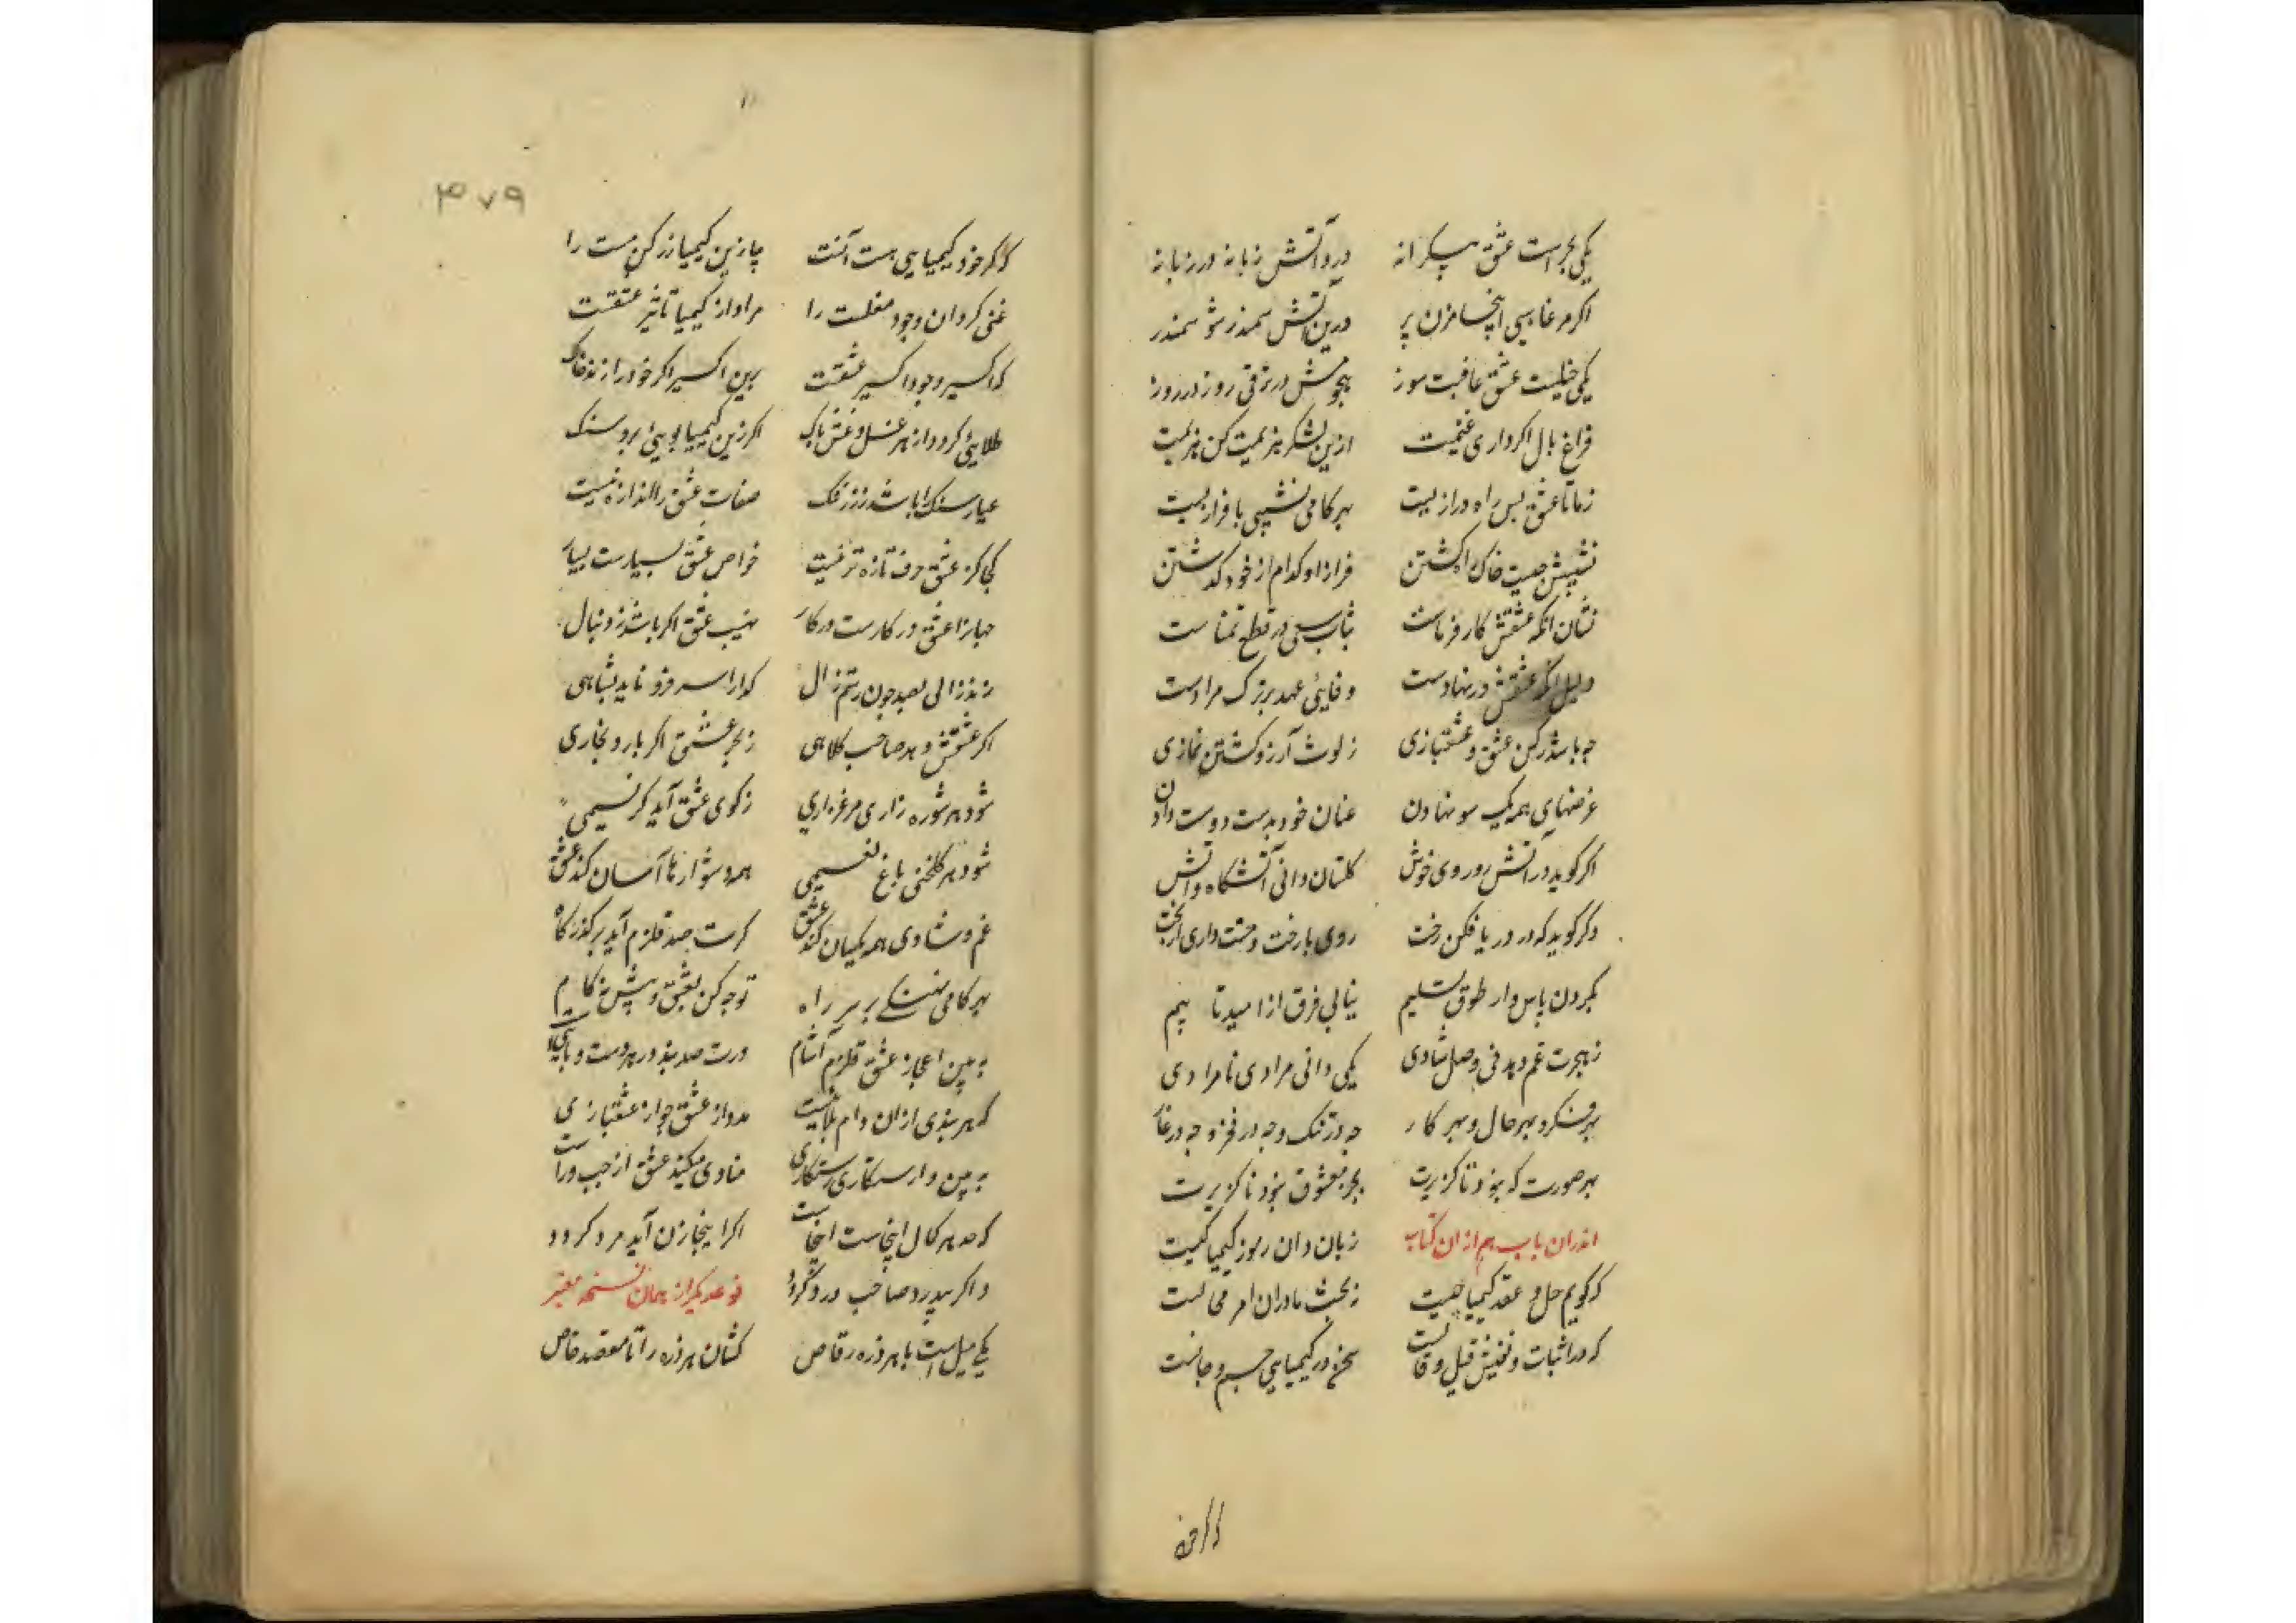 یکی بحر است عشق بیکرانه درو آتش زبانه در زبانه
اگر مرغابیی اینجا مزن پر درین آتش سمندر شو سمندر
یکی خیلیست عشق عافیت سوز هجومش در ترقی روز در روز
فراغ بال اگر داری غنیمت ازین لشکر هزیمت کن هزیمت
ز ما تا عشق بس راه درازیست بهر گامی نشیبی با فرازیست
نشیبش چیست خاک راه گشتن فراز او کدام از خود گذشتن
نشان آنکه عشقش کارفرماست ثبات سعی در قطع تمناست
دلیل آنکه عشقش در نهادست وفایی عهد بر ترک مرادست
چه باشد رکن عشق و عشقبازی ز لوث آرزو گشتن نمازی
غرضهای همه یک سو نهادن عنان خود بدست دوست دادن
اگر گوید در آتش رو روی خوش گلستان دانی آتشگاه و آتش
وگر گوید که در دریا فکن رخت روی با رخت و منت داری از بخت
بگردن پاس دار طوق تسلیم نیابی فرق از امید تا بیم
ز هجرت غم دهد نی وصل شادی یکی دانی مرادی نامرادی
بهر فکر و بهر حال و بهر کار چه در تنگ و چه در فخر و چه در عار
بهر صورت که نبود ناگزیرت بجز معشوق نبود ناگزیرت
اندران باب هم از ان کتاب زبان دان رموز کیمیا کیست
که گویم حل و عقد کیمیا چیست ز بحث ما دران امر محالست
که در اثبات و نفیش قیل و قالست سخن در کیمیایی جسم و جانست
که گر خود
۴۷۹
که گر خود کیمیایی هست آنست بیا زین کیمیا زر کن مست را
غنی گردان وجود مفلست را مراد از کیمیا تأثیر عشقست
که اکسیر وجود اکسیر عشقست برین اکسیر اگر خود را زند خاک
طلایی گردد از هر غل و غش پاک اگر زین کیمیا بویی برد سنگ
عیار سنگ را باشد ز زر ننگ صفات عشق را اندازه نیست
کجا کز عشق حرف تازه تر نیست خواص عشق بسیارست بسیار
جهان را عشق در کارست در کار نهیب عشق اگر باشد ز دنبال
زند زالی بصد چون رستم زال گدا را سر فرو ناید بشاهی
اگر عشقش دهد صاحب کلاهی ز بحر عشق اگر بارد بخاری
شود هر شوره زاری مرغزاری ز کوی عشق آید گر نسیمی
شود هر گلخنی باغ نعیمی همه دشوارها آسان کند عشق
غم و شادی همه یکسان کند عشق گرت صد قلزم آید بر گذرگاه
بهر گامی نهنگی بر سر راه توجه کن بعشق و پیش نه گام
ببین اعجاز عشق قلزم آشام ورت صد بند در هر دست و پاییست
که هر بندی از ان دام بلاییست مدد از عشق جو از عشقبازی
ببین وارستگاری رستگاری منادی میکند عشق از چپ و راست
که حد هر کمال اینجاست اینجاست اگر اینجا زن آید مرد گردد
و اگر بیدرد صاحب درد گردد نوع دیگر از همان نسخه معتبر
یکی میل است با هر ذره رقاص کشان هر ذره را تا مقصد خاص